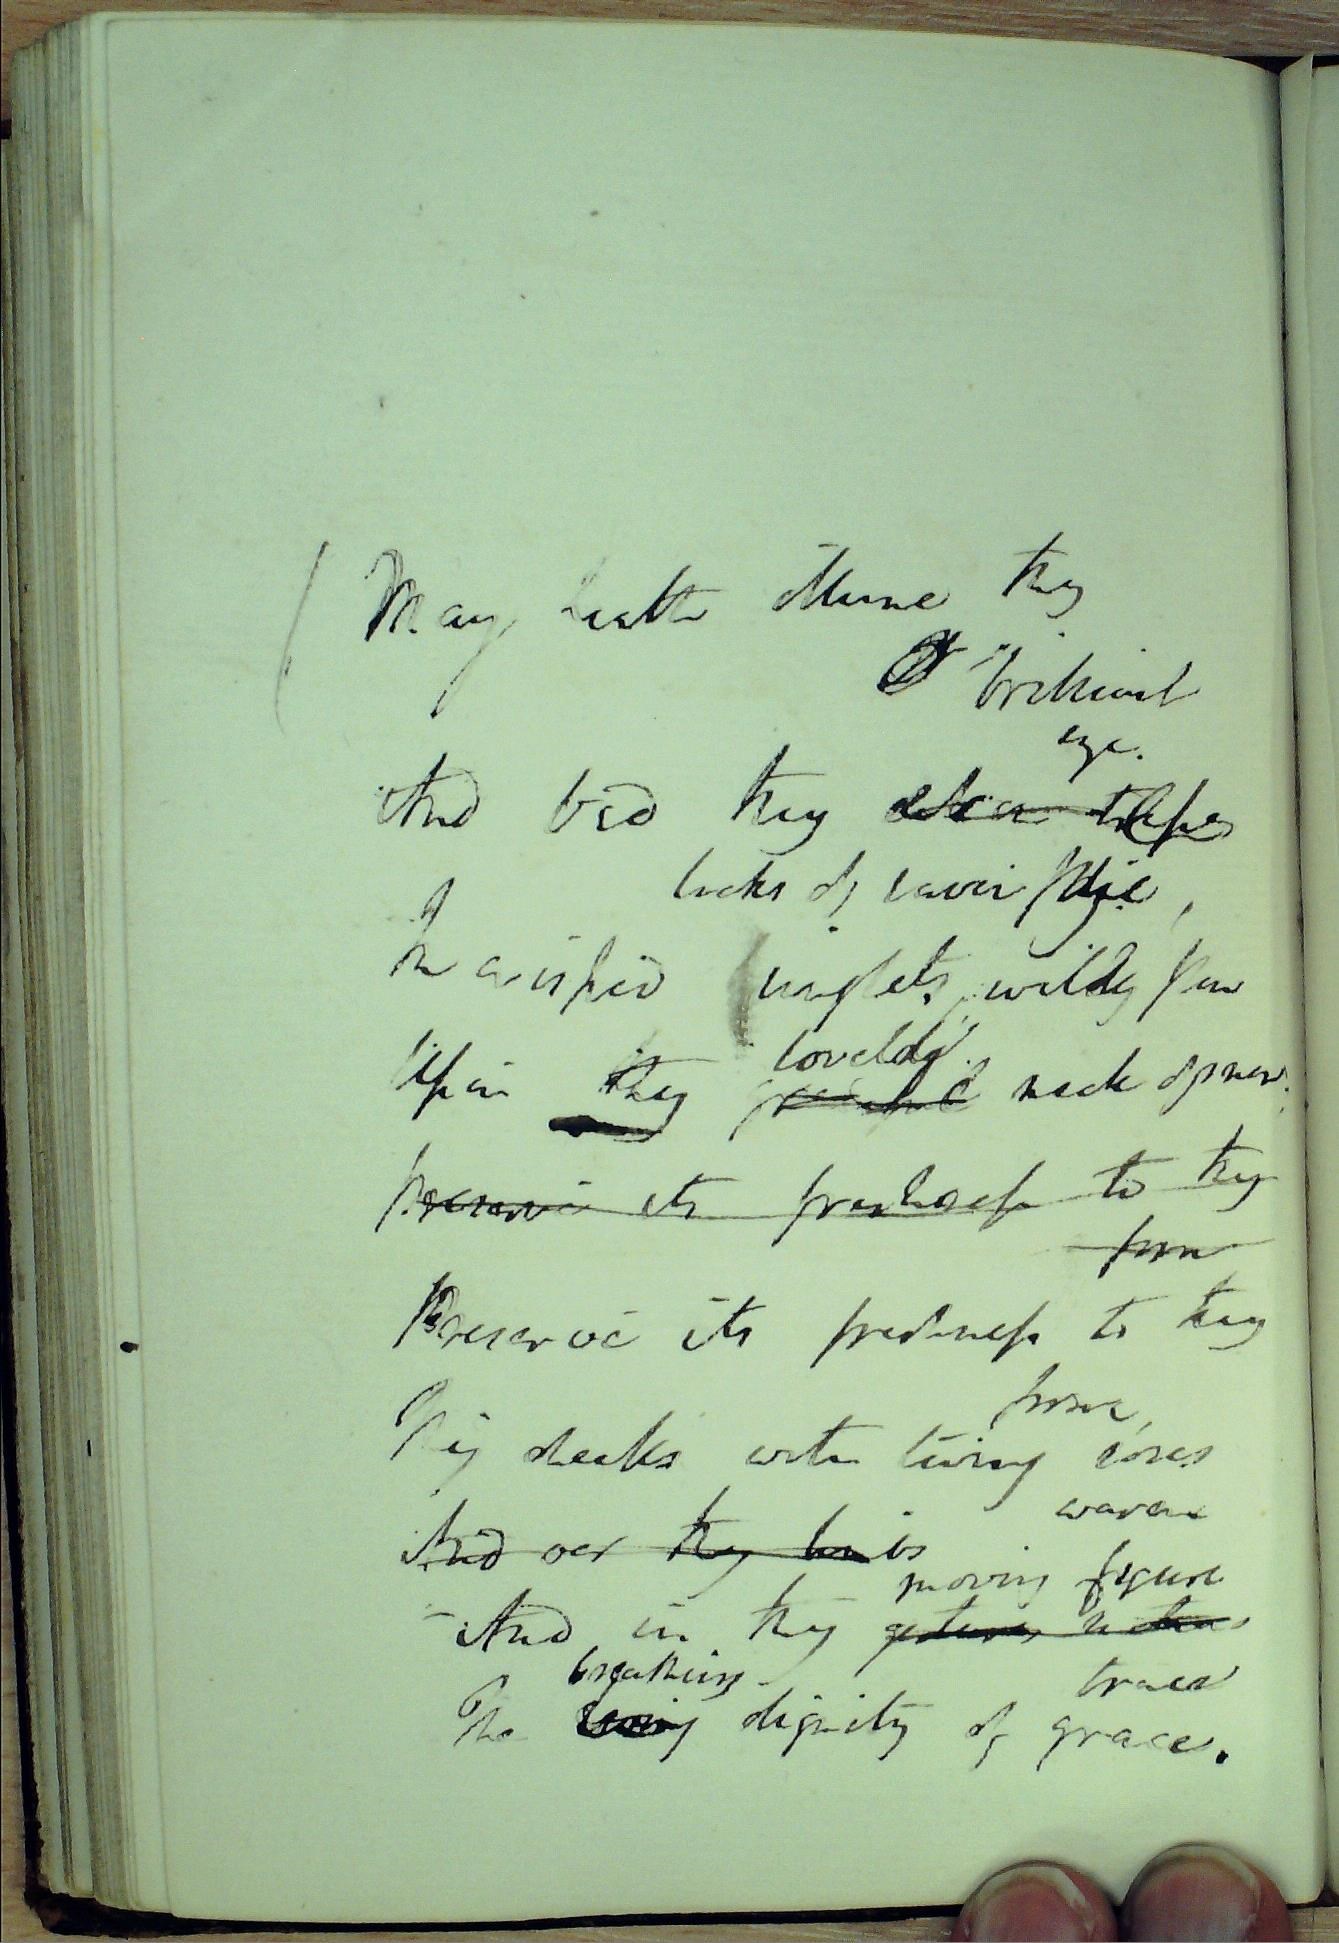 May health illume thy
brilliant
eye.
And bid thy
locks of raven
In crisped ringlets, wildly flow
lovely
Upon thy graceful neck of snow.
Preserve its freshness to thy
form
Preserve its freshness to thy
form,
Thy cheeks with living roses
warm
And oer thy limbs
moving figure
And in thy gestures
breathing trace
The living dignity of grace.